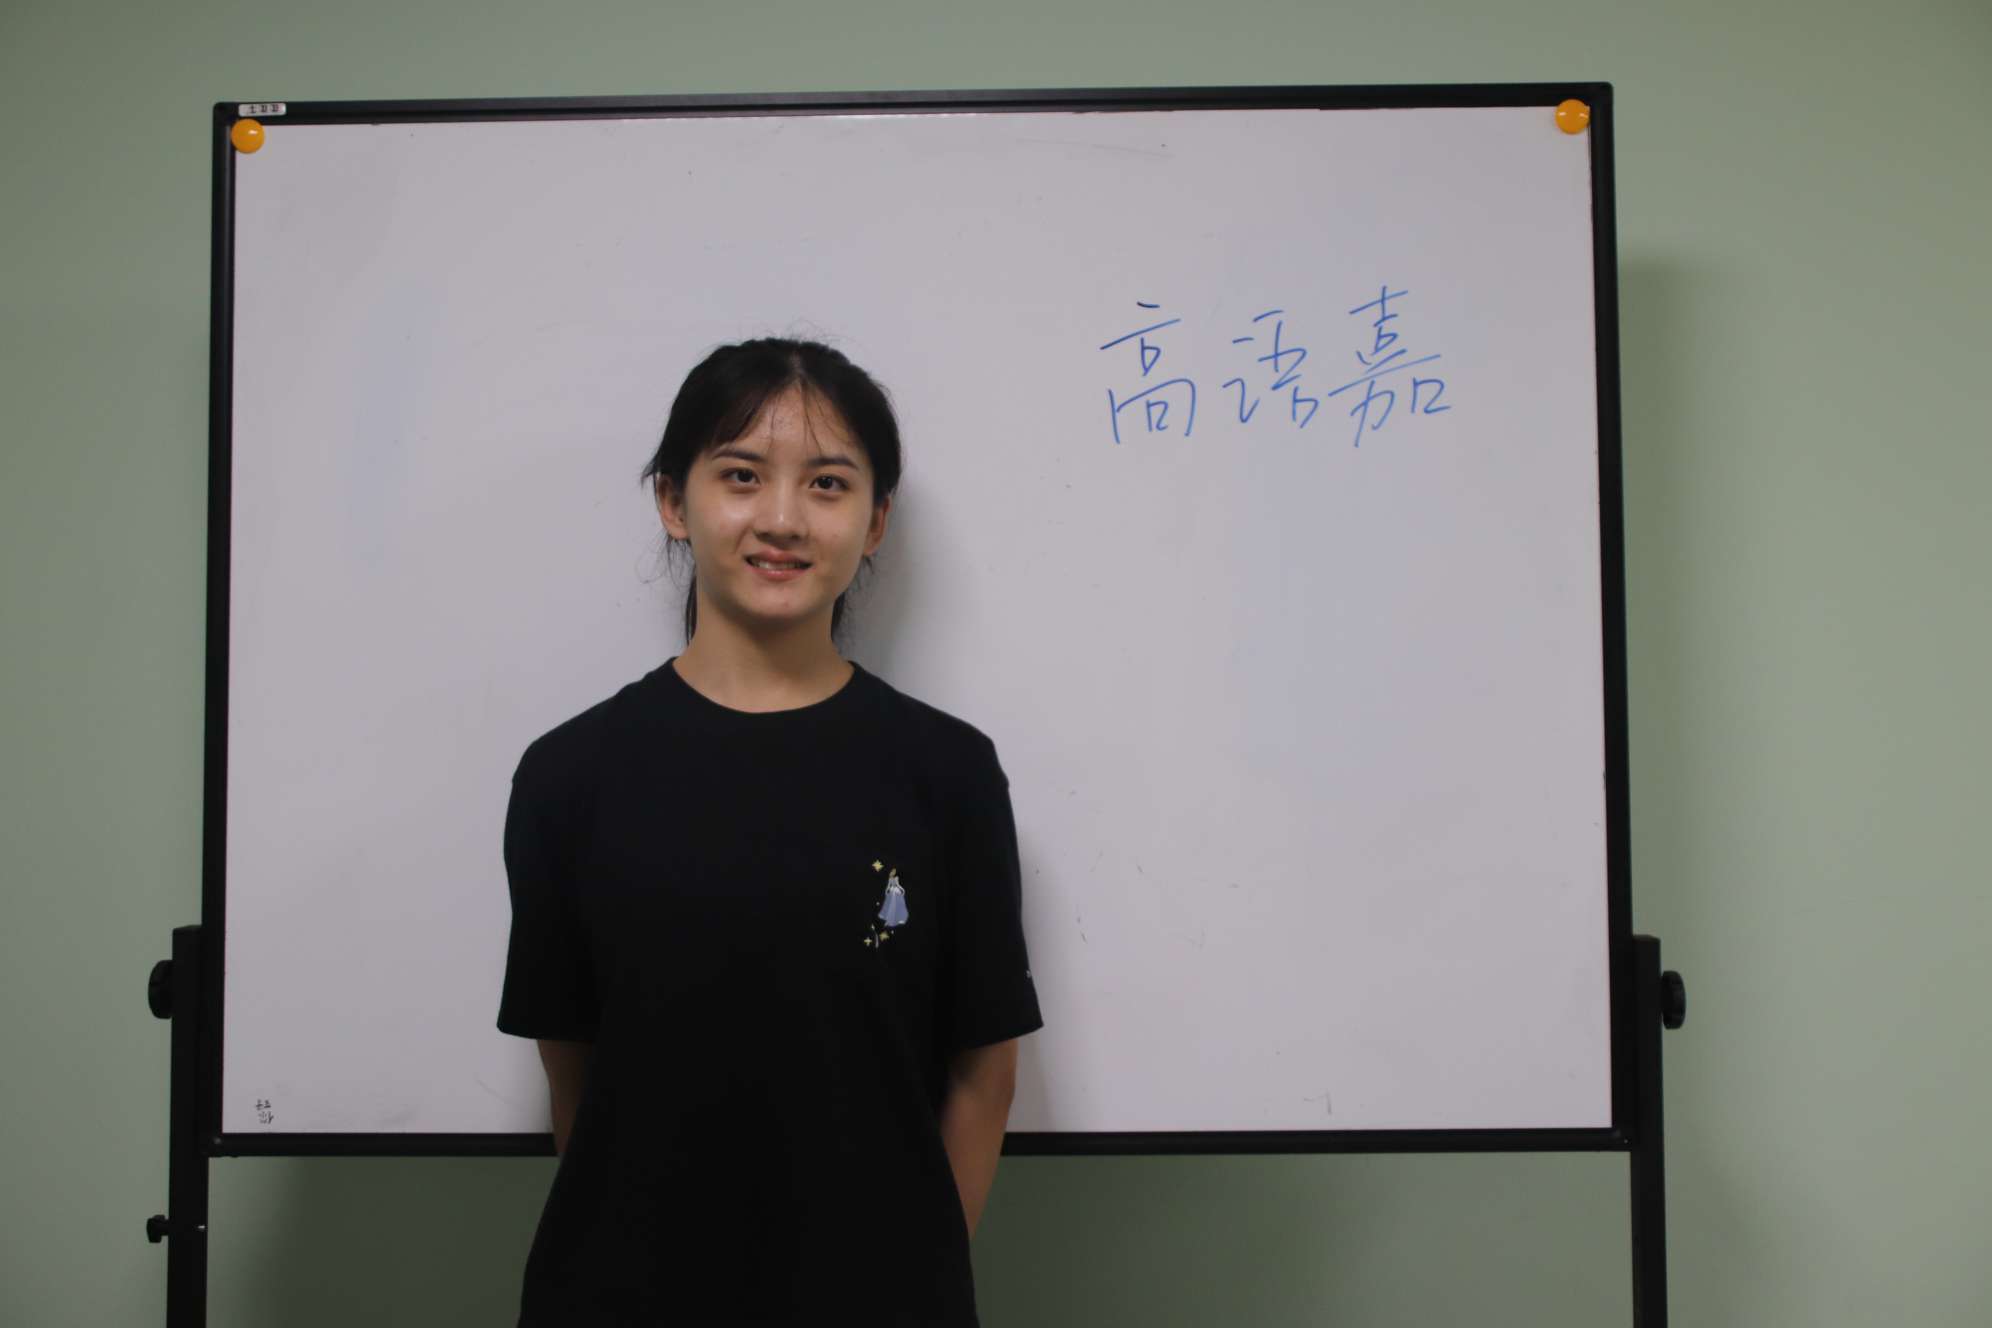 高语嘉